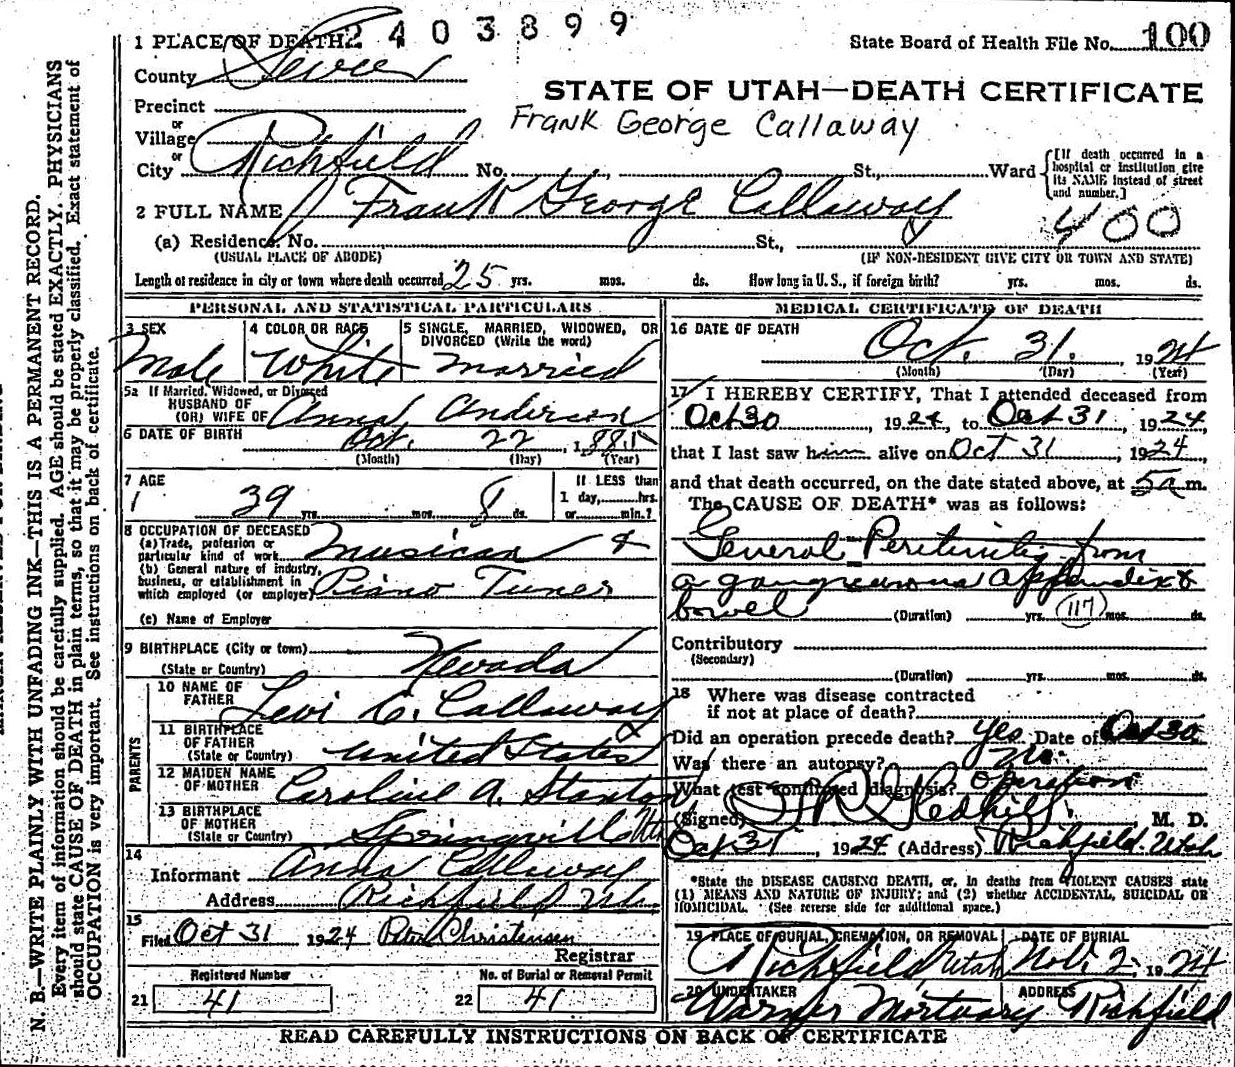 2403899
1 PLACE OF DEATH
State Board of Health File No. 100
County Sevier
STATE OF UTAH—DEATH CERTIFICATE
Precinct
or
Village
Frank George Callaway
or
City Richfield No. St., Ward
[If death occurred in a hospital or institution give its NAME instead of street and number.]
2 FULL NAME Frank George Callaway
400
(a) Residence. No. St.,
(USUAL PLACE OF ABODE) (IF NON-RESIDENT GIVE CITY OR TOWN AND STATE)
Length of residence in city or town where death occurred 25 yrs. mos. ds. How long in U. S., if foreign birth? yrs. mos. ds.
PERSONAL AND STATISTICAL PARTICULARS
3 SEX
Male
4 COLOR OR RACE
White
5 SINGLE, MARRIED, WIDOWED, OR
DIVORCED (Write the word)
Married
5a If Married, Widowed, or Divorced
HUSBAND OF
(OR) WIFE OF Anna Anderson
6 DATE OF BIRTH Oct. 22, 1885
(Month) (Day) (Year)
7 AGE
39 yrs. mos. 8 ds.
If LESS than
1 day, hrs.
or min.?
8 OCCUPATION OF DECEASED
(a) Trade, profession or
particular kind of work Musican &
(b) General nature of industry,
business, or establishment in
which employed (or employer) Piano Tuner
(c) Name of Employer
9 BIRTHPLACE (City or town)
(State or Country) Nevada
PARENTS
10 NAME OF
FATHER Levi C. Callaway
11 BIRTHPLACE
OF FATHER
(State or Country) United States
12 MAIDEN NAME
OF MOTHER Caroline A. Stanton
13 BIRTHPLACE
OF MOTHER
(State or Country) Springville Utah
14
Informant Anna Callaway
Address Richfield Utah
15
Filed Oct 31 1924 Peter Christensen
Registrar
Registered Number No. of Burial or Removal Permit
21 41 22 41
MEDICAL CERTIFICATE OF DEATH
16 DATE OF DEATH
Oct. 31. , 1924
(Month) (Day) (Year)
17 I HEREBY CERTIFY, That I attended deceased from
Oct 30 , 1924, to Oct 31 , 1924,
that I last saw him alive on Oct 31 , 1924,
and that death occurred, on the date stated above, at 5a m.
The CAUSE OF DEATH* was as follows:
General Peritinitis from
a gangreenous appendix &
bowel
(Duration) yrs. 117 mos. ds.
Contributory
(Secondary)
(Duration) yrs. mos. ds.
18 Where was disease contracted
if not at place of death?
Did an operation precede death? Yes Date of Oct 30
Was there an autopsy? No.
What test confirmed diagnosis? Operation
(Signed) Gledhill M. D.
Oct 31 , 1924 (Address) Richfield. Utah
*State the DISEASE CAUSING DEATH, or, in deaths from VIOLENT CAUSES state
(1) MEANS AND NATURE OF INJURY; and (2) whether ACCIDENTAL, SUICIDAL OR
HOMICIDAL. (See reverse side for additional space.)
19 PLACE OF BURIAL, CREMATION, OR REMOVAL
Richfield Utah
DATE OF BURIAL
Nov. 2, 1924
20 UNDERTAKER
Warner Mortuary
ADDRESS
Richfield
READ CAREFULLY INSTRUCTIONS ON BACK OF CERTIFICATE
N. B.—WRITE PLAINLY WITH UNFADING INK—THIS IS A PERMANENT RECORD.
Every item of information should be carefully supplied. AGE should be stated EXACTLY. PHYSICIANS
should state CAUSE OF DEATH in plain terms, so that it may be properly classified. Exact statement of
OCCUPATION is very important. See instructions on back of certificate.